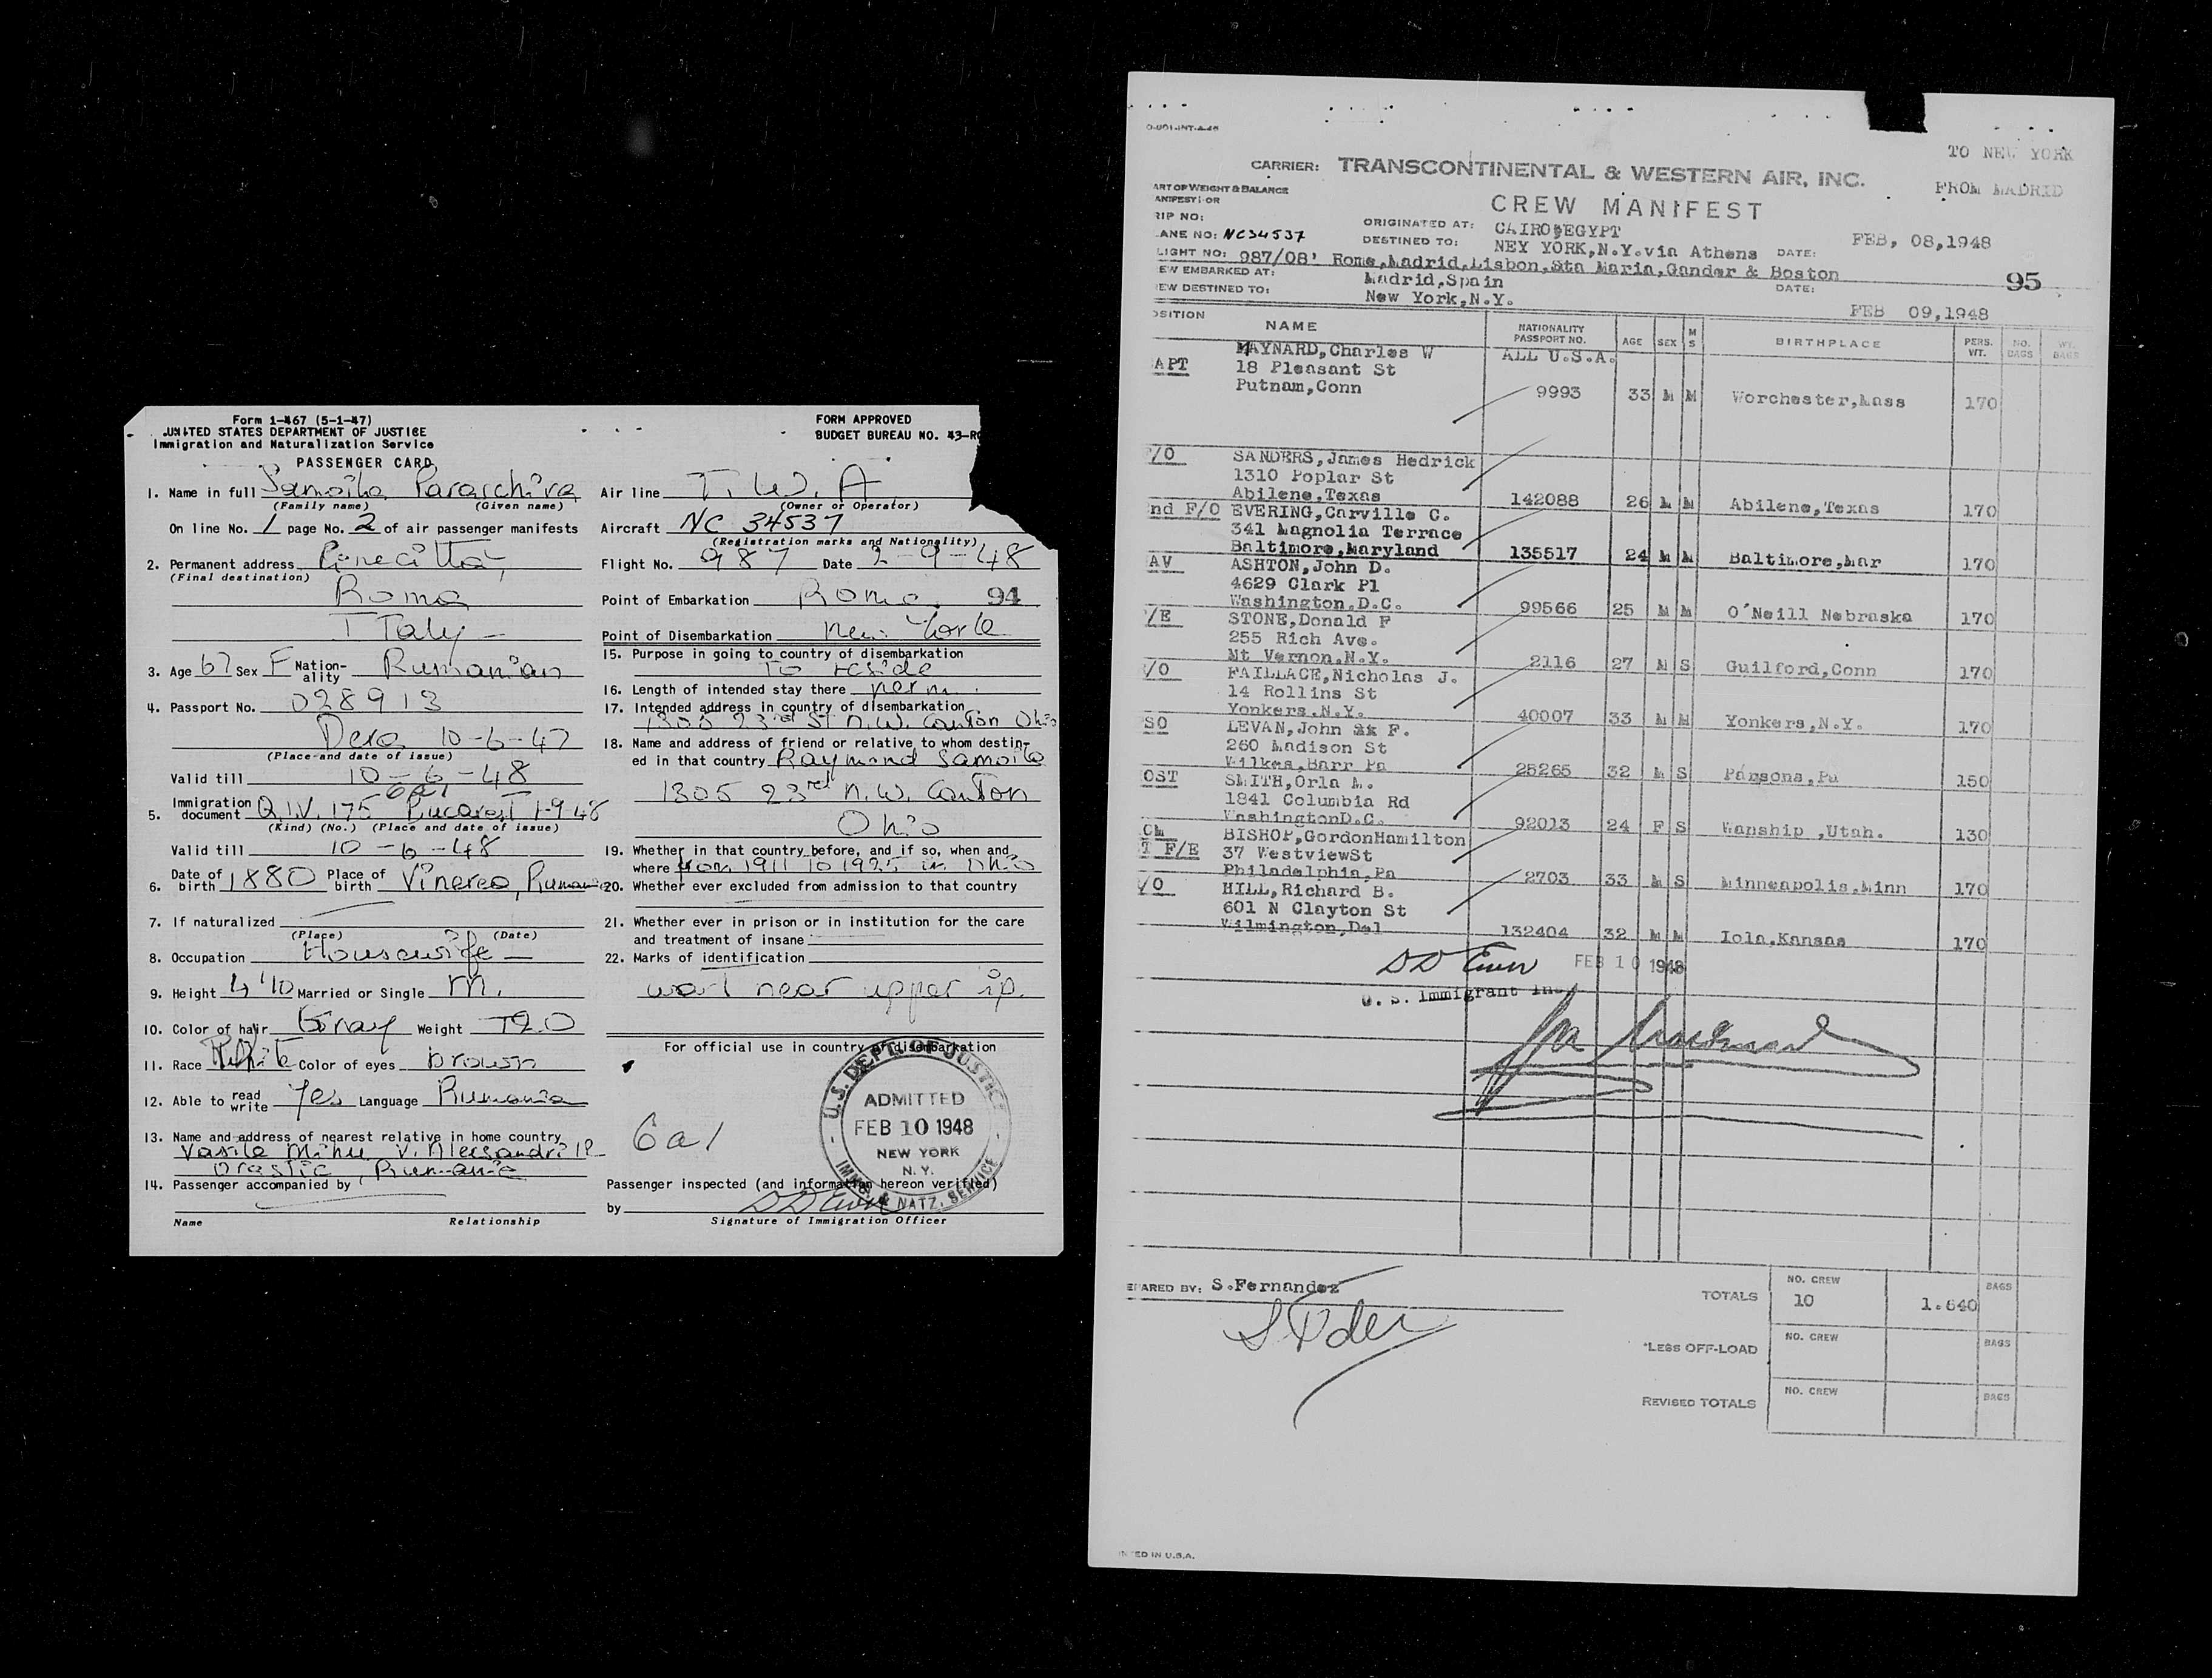 Form 1-467 (5-1-47)
UNITED STATES DEPARTMENT OF JUSTICE
Immigration and Naturalization Service
PASSENGER CARD
FORM APPROVED
BUDGET BUREAU NO. 43-R0
1. Name in full Samoila Paraschiva
(Family name) (Given name)
On line No. 1 page No. 2 of air passenger manifests
2. Permanent address
(Final destination)
Roma
Italy
3. Age 67 Sex F Nationality Rumanian
4. Passport No. 028913
Deva 10-6-47
(Place and date of issue)
Valid till 10-6-48
6a1
5. Immigration document Q.I.V. 175 Bucarest 1-9-48
(Kind) (No.) (Place and date of issue)
Valid till 10-6-48
6. Date of birth 1880 Place of birth Vinerea, Rumania
7. If naturalized
(Place) (Date)
8. Occupation Housewife
9. Height 4'10 Married or Single M.
10. Color of hair Gray Weight 120
11. Race White Color of eyes brown
12. Able to read write Yes Language Rumania
13. Name and address of nearest relative in home country
Vasile Mihu V. Alecsandri 12
Orastie Rumania
14. Passenger accompanied by
Name Relationship
Air line T. W. A
(Owner or Operator)
Aircraft NC 34537
(Registration marks and Nationality)
Flight No. 987 Date 2-9-48
Point of Embarkation Roma 94
Point of Disembarkation New York
15. Purpose in going to country of disembarkation
To reside
16. Length of intended stay there perm.
17. Intended address in country of disembarkation
1305 23rd St N.W. Canton Ohio
18. Name and address of friend or relative to whom destin-
ed in that country Raymond Samoila
1305 23rd N.W. Canton
Ohio
19. Whether in that country before, and if so, when and
where from 1911 to 1925 in Ohio
20. Whether ever excluded from admission to that country
21. Whether ever in prison or in institution for the care
and treatment of insane
22. Marks of identification
wart near upper lip.
For official use in country of disembarkation
6a1
U.S. DEPT. OF JUSTICE
ADMITTED
FEB 10 1948
NEW YORK
N.Y.
IMMIG. & NATZ. SERVICE
Passenger inspected (and information hereon verified)
by DD Ewen
Signature of Immigration Officer
O-801-INT-4-46
TO NEW YORK
CARRIER: TRANSCONTINENTAL & WESTERN AIR, INC.
FROM MADRID
ART OF WEIGHT & BALANCE
ANIFEST) OR
CREW MANIFEST
RIP NO:
ORIGINATED AT: CAIRO EGYPT
LANE NO: NC34537
DESTINED TO: NEY YORK,N.Y.via Athens DATE: FEB, 08,1948
LIGHT NO: 987/08' Rome,Madrid,Lisbon,Sta Maria,Gander & Boston
EW EMBARKED AT: Madrid,Spain DATE: 95
EW DESTINED TO: New York,N.Y.
FEB 09,1948
OSITION NAME NATIONALITY PASSPORT NO. AGE SEX M S BIRTHPLACE PERS. WT. NO. BAGS WT. BAGS
APT MAYNARD,Charles W ALL U.S.A.
18 Pleasant St
Putnam,Conn 9993 33 M M Worchester,Mass 170
/O SANDERS,James Hedrick
1310 Poplar St
Abilene,Texas 142088 26 M M Abilene,Texas 170
nd F/O EVERING,Carville C.
341 Magnolia Terrace
Baltimore,Maryland 135517 24 M M Baltimore,Mar 170
AV ASHTON,John D.
4629 Clark Pl
Washington.D.C. 99566 25 M M O'Neill Nebraska 170
/E STONE,Donald F
255 Rich Ave.
Mt Vernon.N.Y. 2116 27 M S Guilford,Conn 170
/O FAILLACE,Nicholas J.
14 Rollins St
Yonkers.N.Y. 40007 33 M M Yonkers,N.Y. 170
SO LEVAN,John F.
260 Madison St
Wilkes,Barr Pa 25265 32 M S Parsons,Pa 150
OST SMITH,Orla M.
1841 Columbia Rd
WashingtonD.C. 92013 24 F S Wanship ,Utah. 130
OM BISHOP,GordonHamilton
T F/E 37 WestviewSt
Philadelphia,Pa 2703 33 M S Minneapolis,Minn 170
/O HILL,Richard B.
601 N Clayton St
Wilmington,Del 132404 32 M M Iola,Kansas 170
DD Ewen FEB 10 1948
U. S. Immigrant Ins
EPARED BY: S.Fernandez
TOTALS NO. CREW 10 1.640 BAGS
*LESS OFF-LOAD NO. CREW BAGS
REVISED TOTALS NO. CREW BAGS
INTED IN U.S.A.